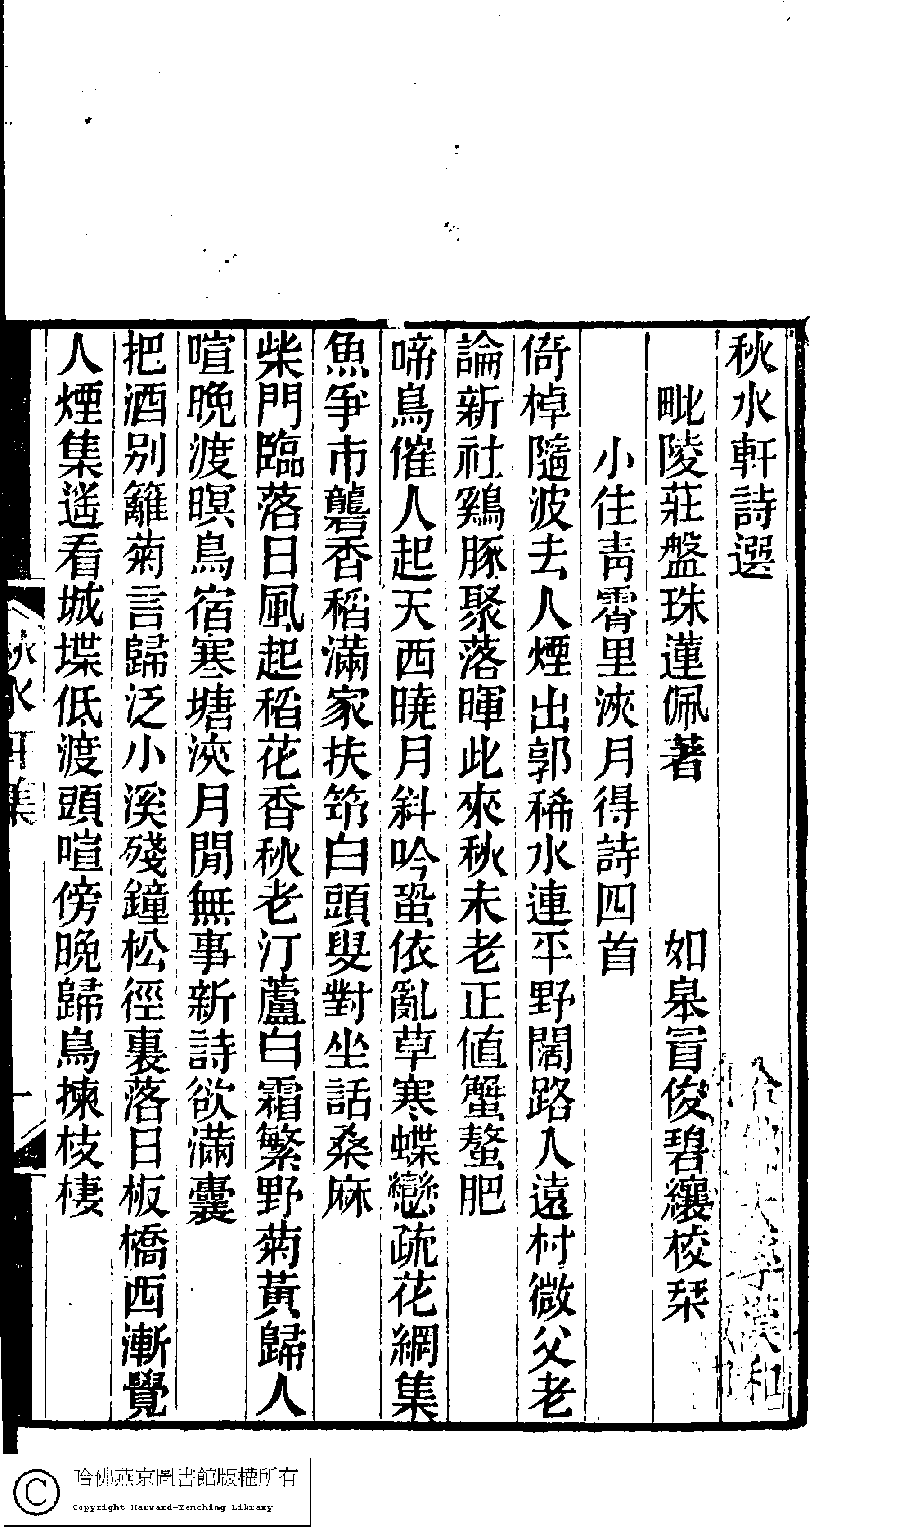 秋水軒詩選
毗陵莊盤珠蓮佩著　如皋冒俊碧纕校栞
小住青霄里浹月得詩四首
倚棹隨波去人煙出郭稀水連平野闊路入遠村微父老
論新社鷄豚聚落暉此來秋未老正値蟹螯肥
啼鳥催人起天西曉月斜吟蛩依亂草寒蝶戀疏花網集
魚爭市礱香稻滿家扶筇白頭叟對坐話桑麻
柴門臨落日風起稻花香秋老汀蘆白霜繁野菊黃歸人
喧晚渡暝鳥宿寒塘浹月閒無事新詩欲滿囊
把酒別籬菊言歸泛小溪殘鐘松徑裏落日板橋西漸覺
人煙集遙看城堞低渡頭喧傍晚歸鳥揀枝棲
秋水軒集
一
哈佛燕京圖書館版權所有
Copyright Harvard-Yenching Library